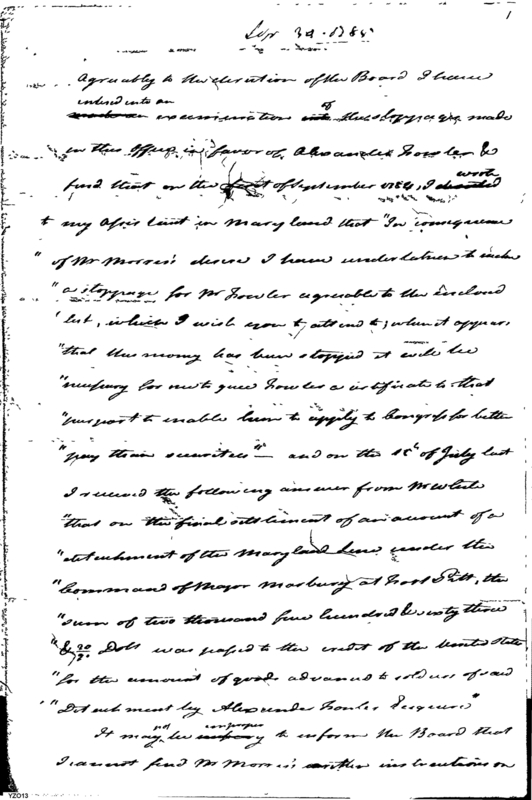 1
Sep 3d. 1785
Agreeably to the direction of the Board I have
entered into an
examination of the stoppage made
in this Office in favor of Alexander Fowler &
find that on the of September 1784, I wrote
to my Assistant in Maryland that "In consequence
" of Mr Morris's desire I have undertaken to make
" a stoppage for Mr Fowler agreeable to the inclosed
' list, which I wish you to attend to; when it appears,
"that this money has been stopped it will be
"necessary for me to give Fowler a certificate to that
"purport to enable him to apply to Congress for better
"pay than securities"— and on the 15th of July last
I received the following answer from Mr White
"that on the final settlement of an account of a
"detachment of the Maryland Line under the
"Command of Major Marbury at Fort Pitt, the
"sum of two thousand five hundred & sixty three
"& Dolls was passed to the credit of the United States
"for the amount of goods advanced to soldiers of said
"Detachment by Alexander Fowler Esquire"
It may not be improper to inform the Board that
I cannot find Mr Morris's instructions on
YZO13